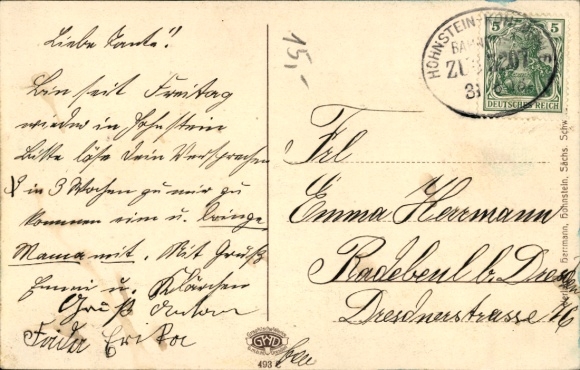 Liebe Tante!!
Bin seit Freitag
wieder in Hohnstein
bitte löse Dein Versprechen
in 3 Wochen zu mir zu
kommen ein u. bringe
Mama mit. Mit Gruß
Emmi u. Klärchen
Gruß
Frida Erika
15,-
HOHNSTEIN-KOH
BAHN
ZUG
31
5 5
DEUTSCHES REICH
Frl
Emma Herrmann
Radebeul b. Dresden
Dresdnerstrasse
Herrmann, Hohnstein, Sächs. Schw.
GWD
493